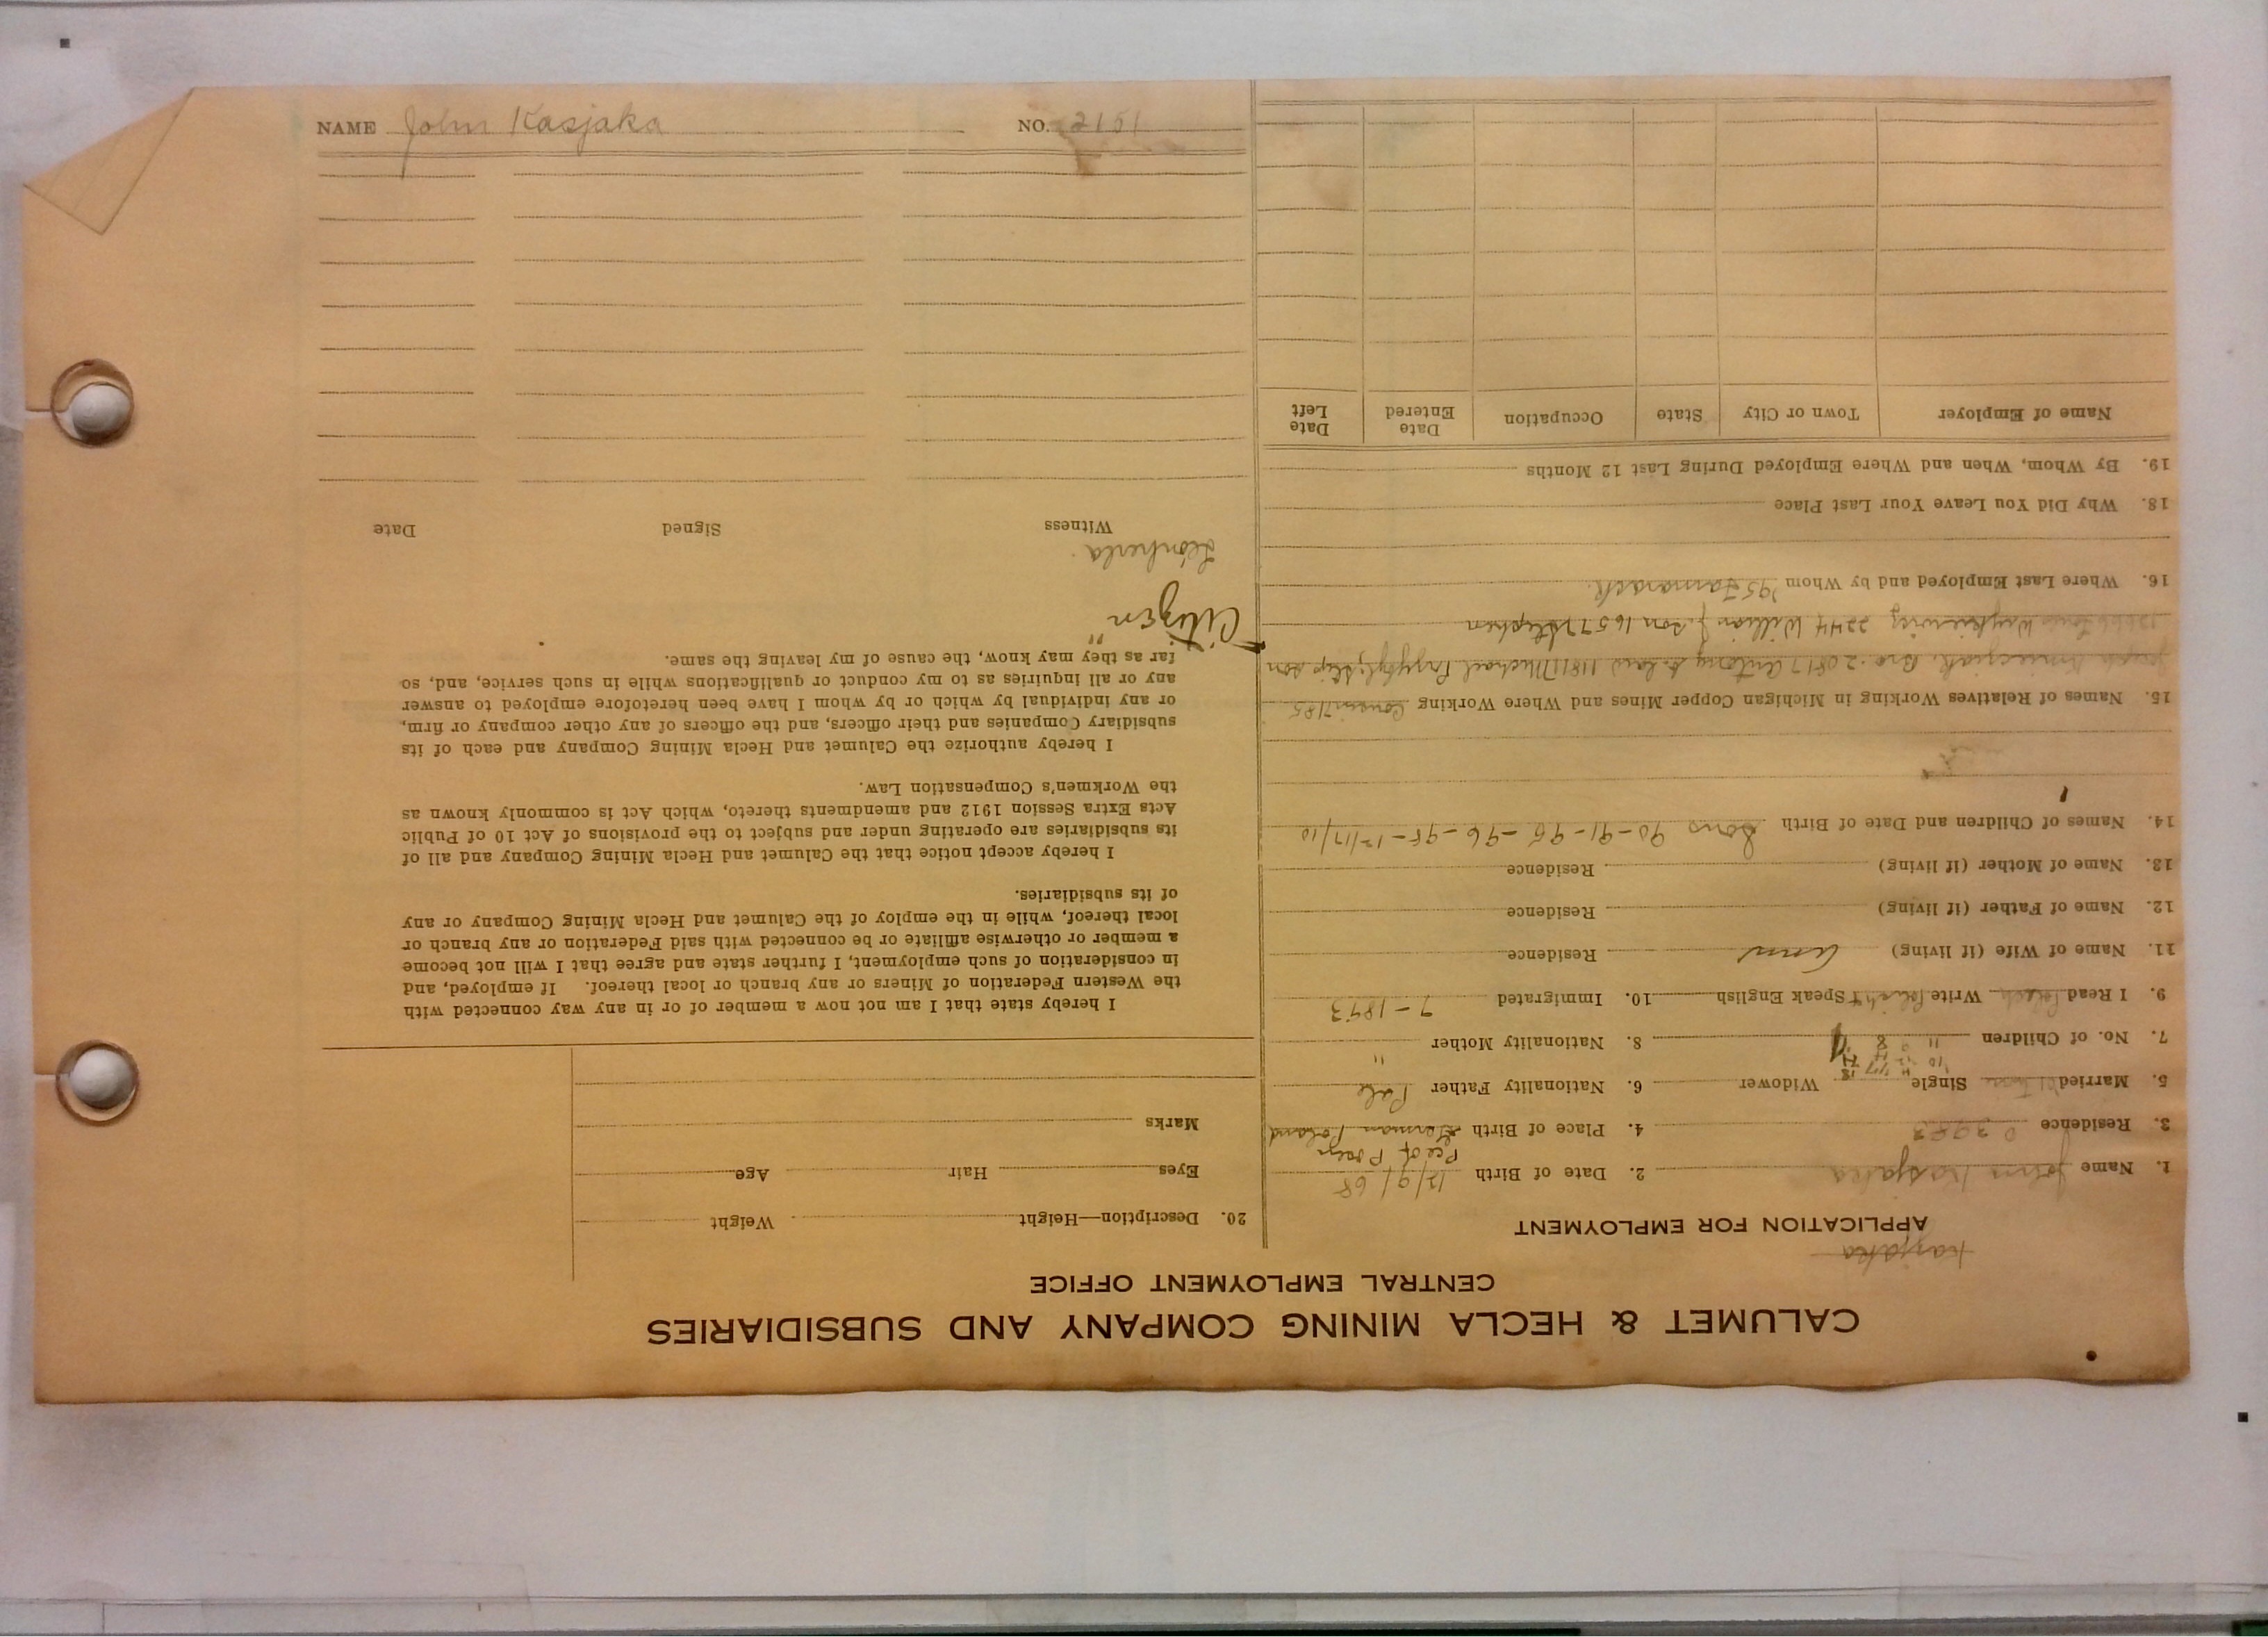 CALUMET & HECLA MINING COMPANY AND SUBSIDIARIES
CENTRAL EMPLOYMENT OFFICE
Kasjaka
APPLICATION FOR EMPLOYMENT
1. Name John Kasjaka 2. Date of Birth 12/9/68
3. Residence 4. Place of Birth German Poland
5. Married Single Widower 6. Nationality Father Pole
7. No. of Children 8. Nationality Mother "
9. I Read Polish Write Polish Speak English 10. Immigrated 7-1873
11. Name of Wife (if living) Ann Residence
12. Name of Father (if living) Residence
13. Name of Mother (if living) Residence
14. Names of Children and Date of Birth Sons 90-91-95-96-98-12/17/10
15. Names of Relatives Working in Michigan Copper Mines and Where Working Cousin 7185
Bro. 20817 Antony 11811 Michael step son
2244 William J. son 16577 Stephen
16. Where Last Employed and by Whom '95 Tamarack.
18. Why Did You Leave Your Last Place
19. By Whom, When and Where Employed During Last 12 Months
Name of Employer Town or City State Occupation Date Entered Date Left
20. Description—Height Weight
Eyes Hair Age
Marks
I hereby state that I am not now a member of or in any way connected with
the Western Federation of Miners or any branch or local thereof. If employed, and
in consideration of such employment, I further state and agree that I will not become
a member or otherwise affiliate or be connected with said Federation or any branch or
local thereof, while in the employ of the Calumet and Hecla Mining Company or any
of its subsidiaries.
I hereby accept notice that the Calumet and Hecla Mining Company and all of
its subsidiaries are operating under and subject to the provisions of Act 10 of Public
Acts Extra Session 1912 and amendments thereto, which Act is commonly known as
the Workmen's Compensation Law.
I hereby authorize the Calumet and Hecla Mining Company and each of its
subsidiary Companies and their officers, and the officers of any other company or firm,
or any individual by which or by whom I have been heretofore employed to answer
any or all inquiries as to my conduct or qualifications while in such service, and, so
far as they may know, the cause of my leaving the same.
Citizen
Witness Signed Date
NAME John Kasjaka NO. 2151